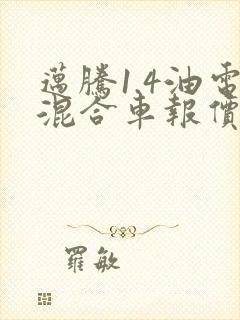 邁騰1.4油電
混合車報價
羅敏